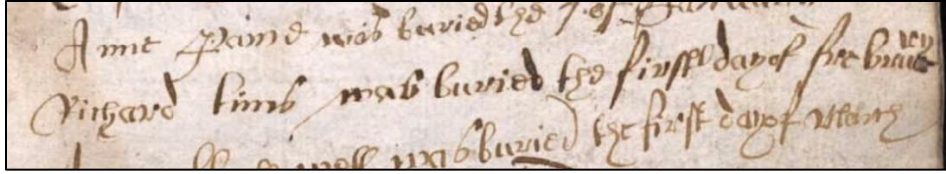 Anne Paine was buried the 7 of January
Richard tims was buried the first day of februarey
was buried the first day of March